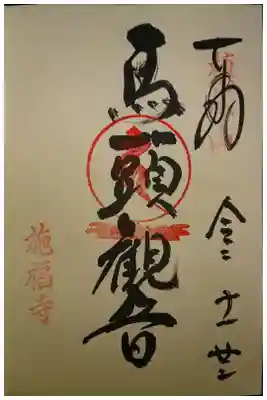 奉拝
令二 十一
馬頭観音
施福寺